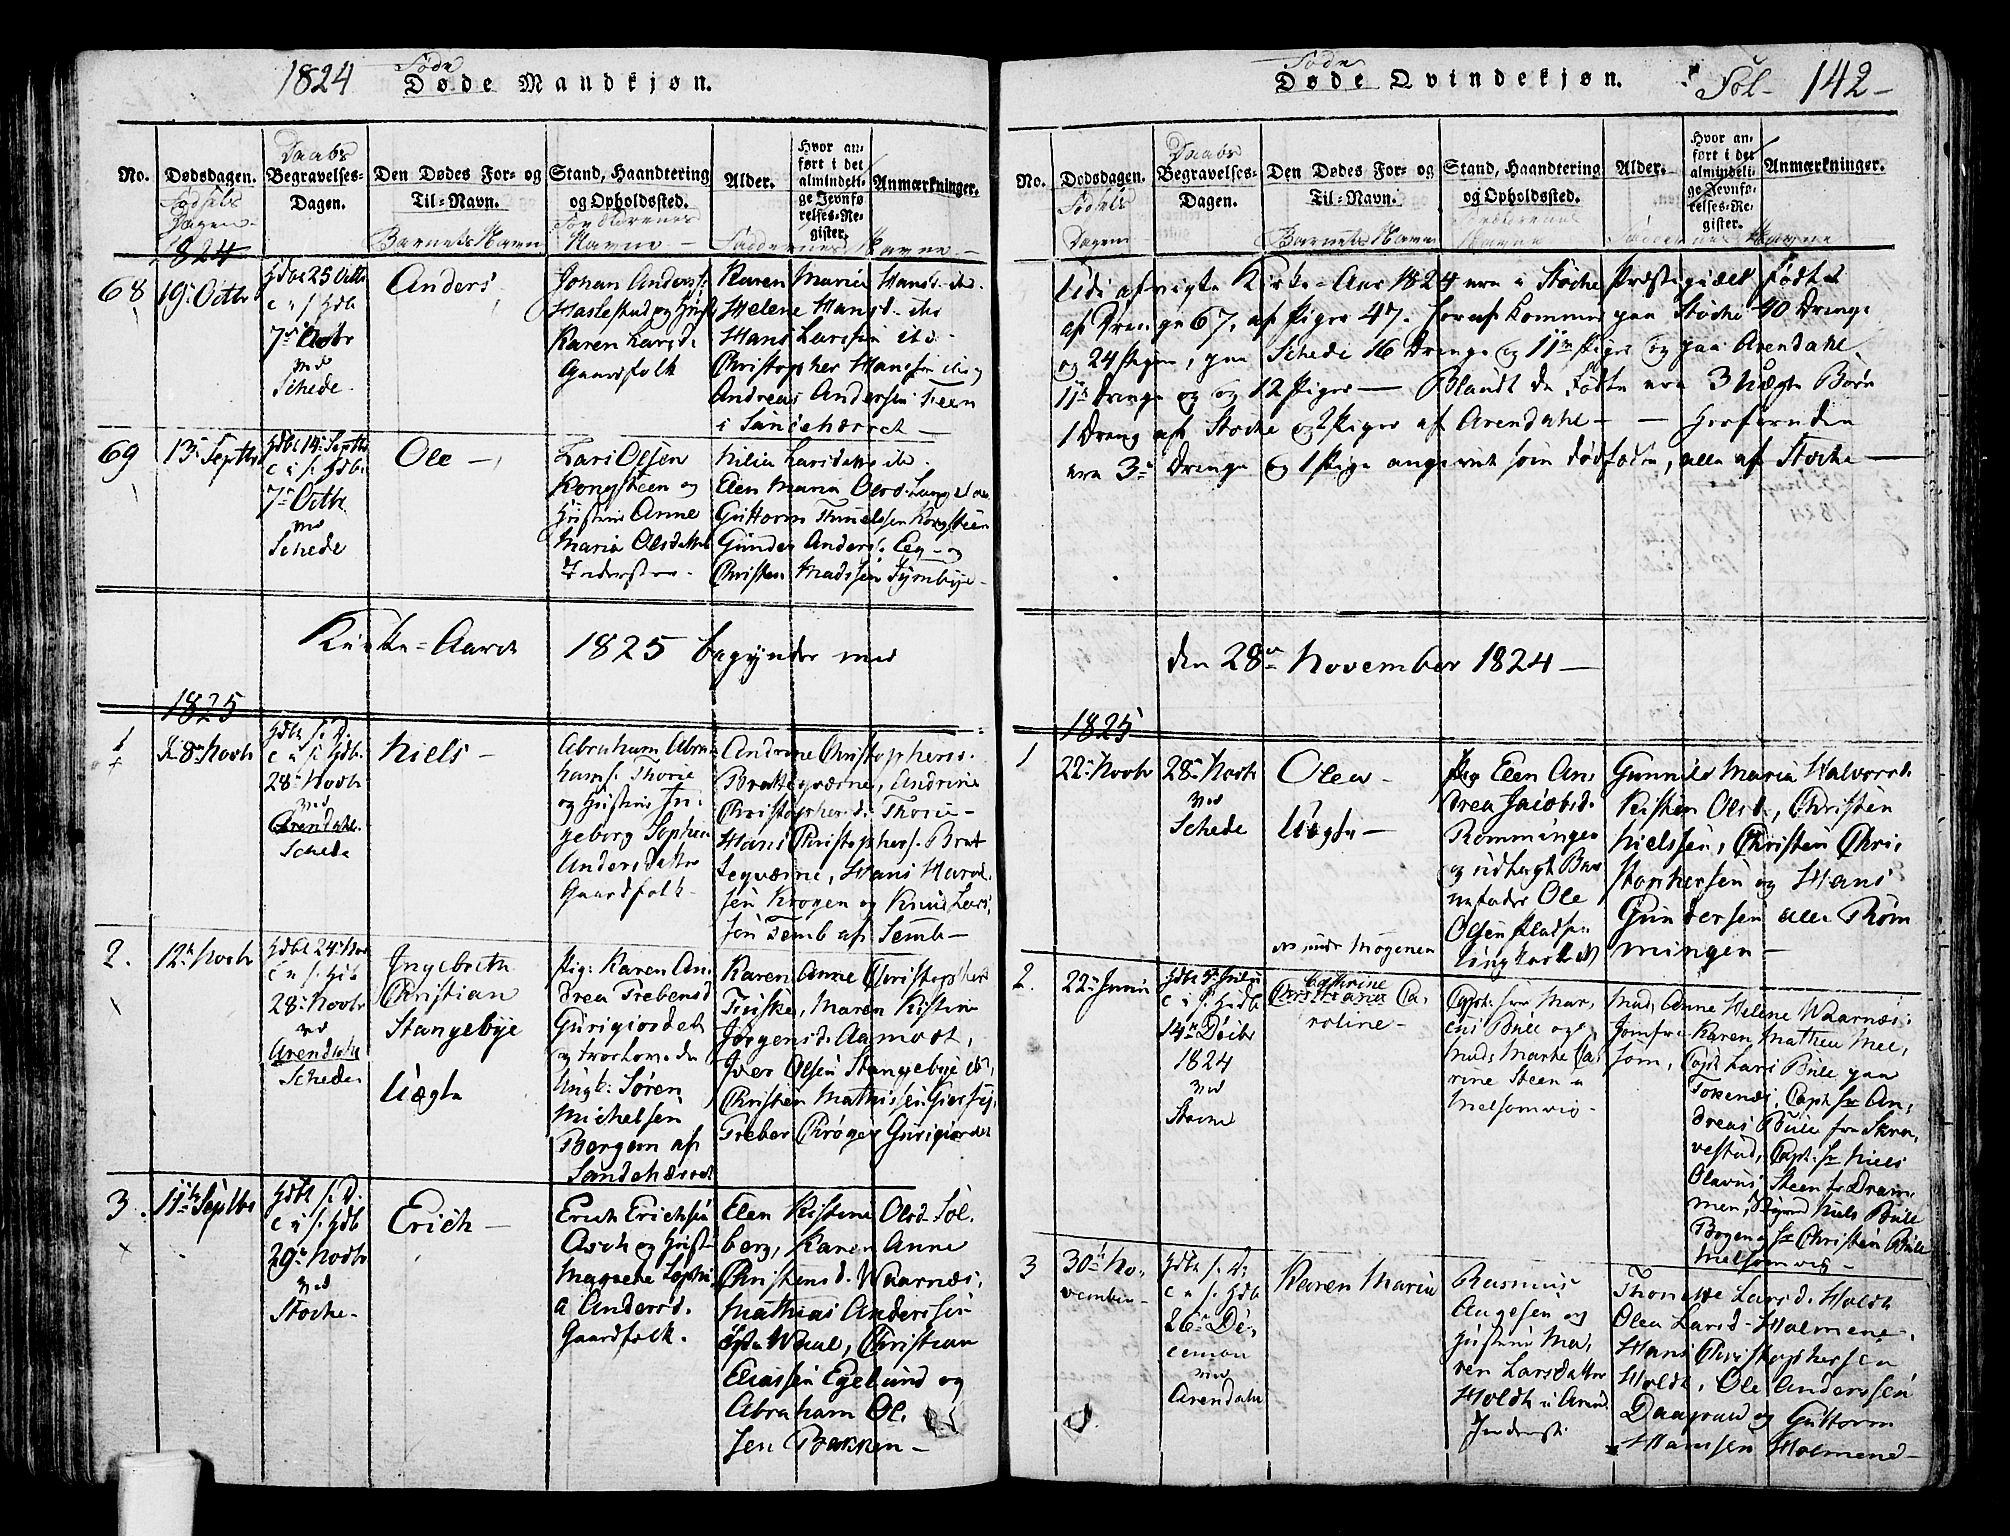 1824 Fødte
Døde Mandkjøn.
No.
Dødsdagen.
Fødsels
Dagen
Daabs
Begravelses-
Dagen.
Den Dødes For- og
Til-Navn.
Barnets Navn
Stand, Haandtering
og Opholdssted.
Forældrenes
Navne —
Alder.
Hvor an-
ført i det
almindeli-
ge Jevnfø
relses-Re-
gister.
Anmærkninger.
Faddernes Navne —
1824
68
19de Octbr
Hdbt 25 Octbr
7de Novbr
ved
Schede
Anders
Johan Anders:
Haslestad og
Karen Larsd:
Gaardfolk
Karen Maria Hansd. ibd.
Helene Hansd. ibd
Hans Larssen ibd.
Christopher Hanssen ibd og
Andreas Andersen Feen
i Sandehærret —
69
13de Septbr
Hdbt 14de Septbr
c i s. Hdbt
7de Octbr
ved
Schede
Ole —
Lars Olsen
Kongsteen og
Hustrue Anne
Maria Olsdatter
Inderster —
Nilia Larsdatter ibd.
Elen Maria Olsd.
Guttorm Kongsteen
Gunder Anders: Eeg — og
Christen Madssen Fÿmbye —
Kirke-Aaret 1825 begynder med
1825
1
8de Novbr
Hdbt s. D.
c i s. Hdbt
28de Novbr
ved
Arendahl
Schede
Niels —
Abraham Abra-
hams. Thorie
og Hustrue In-
geborg Sophia
Andersdatter
Gaardfolk —
Andrine Christophersd.
Bratteqværne, Andrine
Christophersd: Thorie —
Hans Christophers. Brat
teqværne, Hans
sen Krogen og Knud Lars-
sen Temb af Semb —
2.
12te Novbr
Hdbt 24de Nov
c i s. Hdb
28de Novbr
ved
Arendahl
Schede
Ingebreth
Christian
Stangebÿe
Uægte
Pig: Karen An-
drea Trebersd
Gurigiordet
Ungk: Søren
Michelsen
Bergern af
Sandehærret
Karen Anne Christophers
Fuske, Maren Kistine
Jørgensd. Aamodt,
Iver Olsen Stangebÿe ibd,
Christen Mathissen
Treber Gurigiordet
3.
11te Septbr
Hdbt s. D.
c i s. Hdb
29de Novbr
ved
Stocke —
Erich —
Erich Erichsen
Aasch og Hust.
Magrete Sophi
a Andersd.
Gaardfolk.
Elen Kistine Olsd. Sol-
berg, Karen Anne
Christensd. Waarnæs,
Mathias Anderssen
Waal, Christian
Eliassen Egelund og
Abraham Ol-
sen Bakken —
Fødte
Døde Qvindekjøn.
Fol — 142 —
No.
Dødsdagen.
Fødsels
Dagen
Daabs
Begravelses-
Dagen.
Den Dødes For- og
Til-Navn.
Barnets Navn
Stand, Haandtering
og Opholdssted.
Forældrenes
Navne
Alder.
Hvor an-
ført i det
almindeli-
ge Jevnfø-
relses-Re-
gister.
Anmærkninger.
Faddernes Navne
Udi afvigte Kirke-Aar 1824 ere i Stocke Præstegield Fødte
af Drenge 67, af Piger 47. Heraf kommer paa Stocke 40 Drenge
og 24 Piger, paa Schede 16 Drenge og 11 Piger og paa Arendahl
11 Drenge og 12 Piger — Blandt de Fødte ere 3 Uægte Børn
1 Dreng af Stocke og 2 Piger af Arendahl — — Herforuden
ere 3de Drenge og 1 Pige angivet som dødfødte, alle af Stocke —
den 28de November 1824 —
1825
1
22de Novbr
28de Novbr
ved
Schede
Olea —
Uægte —
Pig Elen An-
drea Jacobsd.
Rømmingen
og udlagt Bar-
nefader Ole
Olsen
Gunnild Maria Halvorsd.
Kistine Olsd, Christen
Nielssen, Christen Chri-
stophersen og Hans
Gundersen alle Røm
mingen —
2.
22de Junii
Hdbt Julii
c i s. Hdbt
14de Decbr
1824
ved
Stocke
Cathrine
Christiane Ca-
roline —
Capt: Mar-
cus Bull og
Mad: Marte Ca-
rine Steen i
Melsomvig —
Mad: Anne Helene Waarnæs,
Jomfrue Karen Mathea Mel-
som, Capt Lars Bull paa
Tokenæs, Capt An-
dreas Bull fra Skra-
vestad, Capt: Niels
Olavus Steen fra Dram-
men, Niels Bull
Borgen Christen Bull
Melsomvig —
3
30te No-
vember
Hdbt s. D.
c i s. Hdbt
26de De-
cember
ved
Arendahl
Karen Maria
Rasmus
Aagesen og
Hustrue Ma-
ren Larsdatter
Holdt i Arend.
Inderst:
Thonette Larsd. Holdt
Olea Larsd. Holmene,
Hans Christophersen
Holdt, Ole Anderssen
Daaprud og Guttorm
Hanssen Holmene —